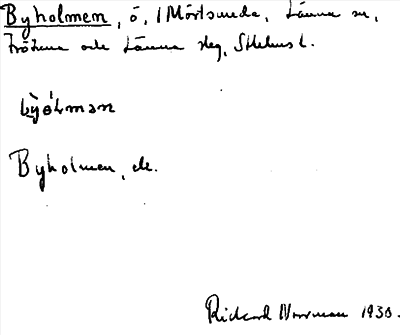 Byholmen, ö, i Mörtsunda, Länna sn,
Frötuna och Länna skg, Sthlms l.
Byholmen, do.
Rickard Norrman 1930.